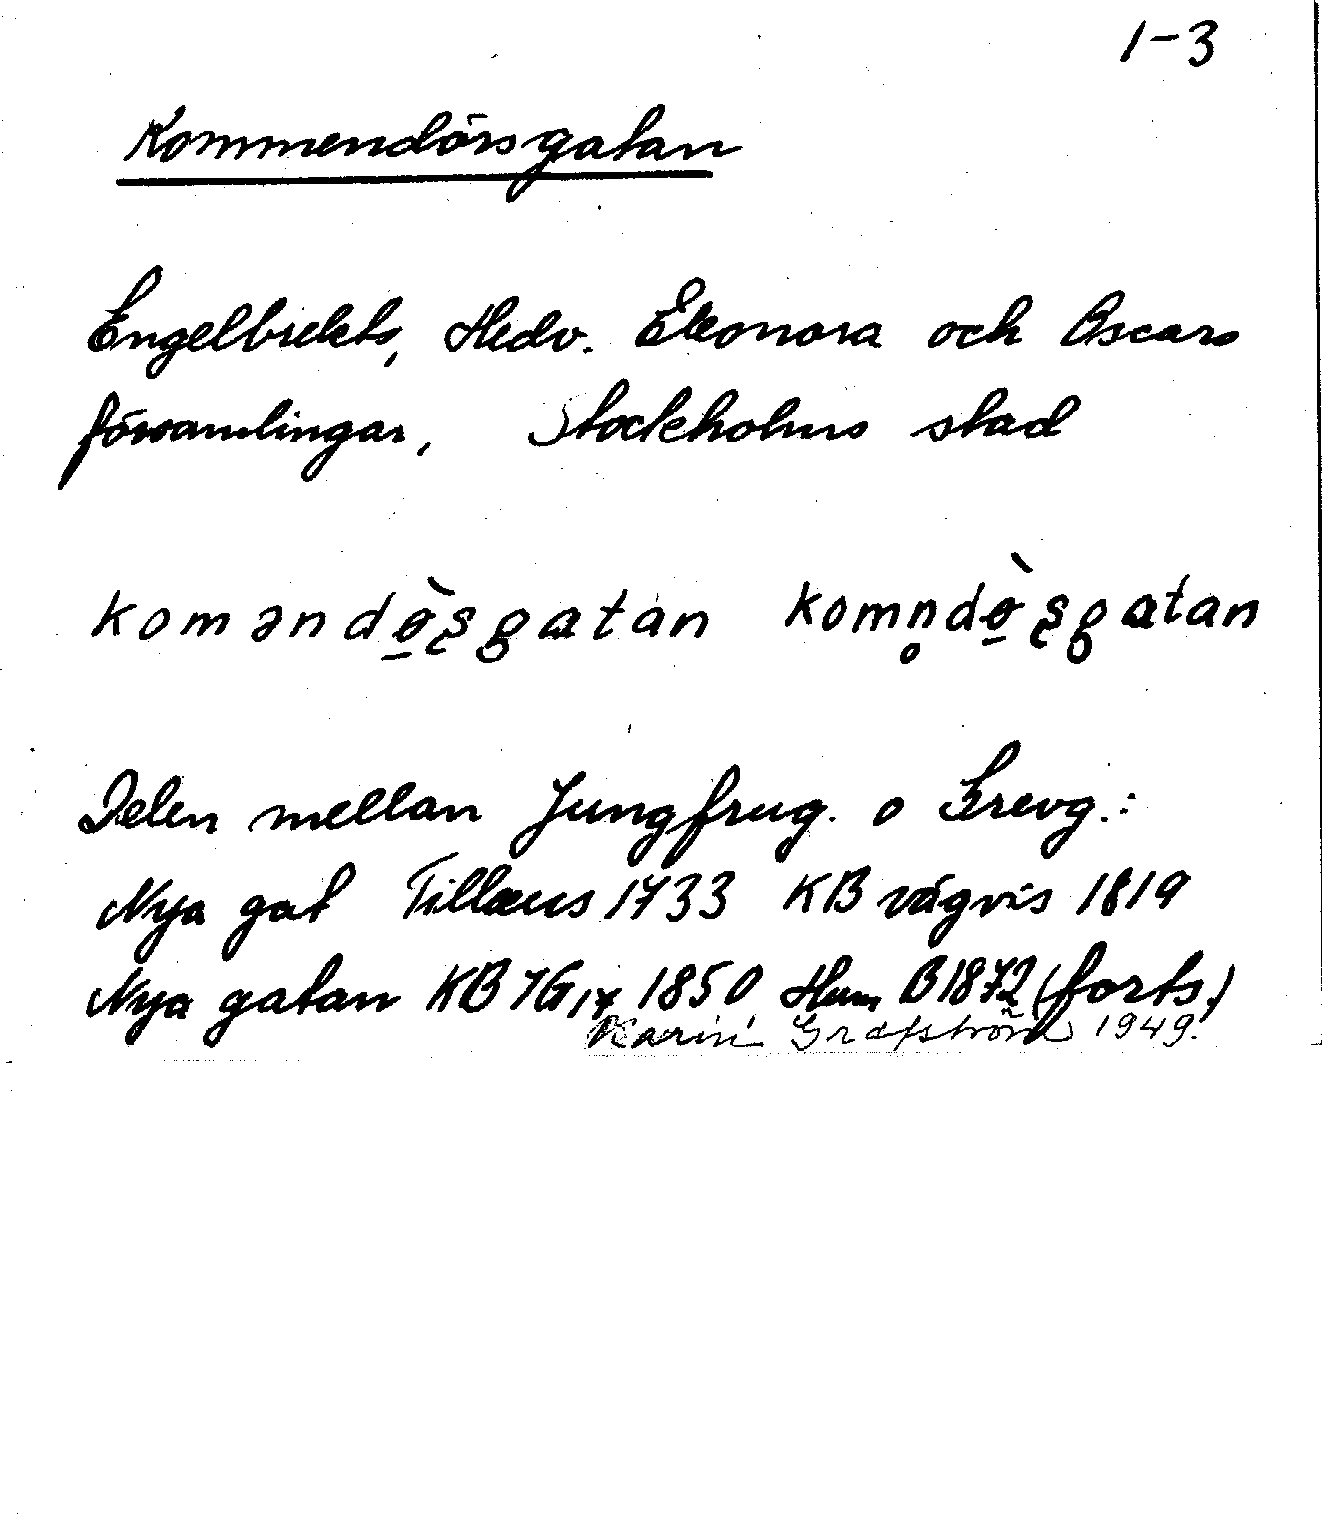 1-3
Kommendörsgatan
Engelbrekts, Hedv. Eleonora och Oscars
församlingar, Stockholms stad
koməndø̱̀ʂgatan komn̥dø̱̀ʂgatan
Delen mellan Jungfrug. o Grevg.:
Nya gat Tillæus 1733 KB vägvis 1819
Nya gatan KB 1850, B1872 (forts.)
Karin Grafström 1949.